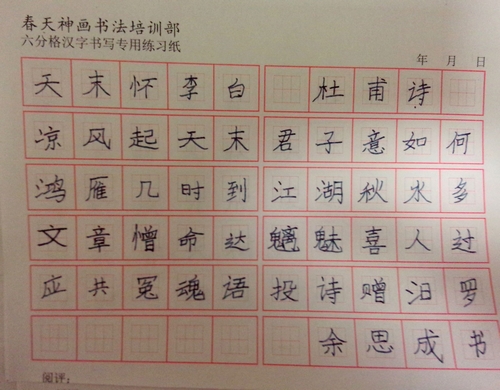 春天神画书法培训部
六分格汉字书写专用练习纸
年 月 日
天末怀李白 杜甫诗
凉风起天末 君子意如何
鸿雁几时到 江湖秋水多
文章憎命达 魑魅喜人过
应共冤魂语 投诗赠汨罗
余思成书
阅评：